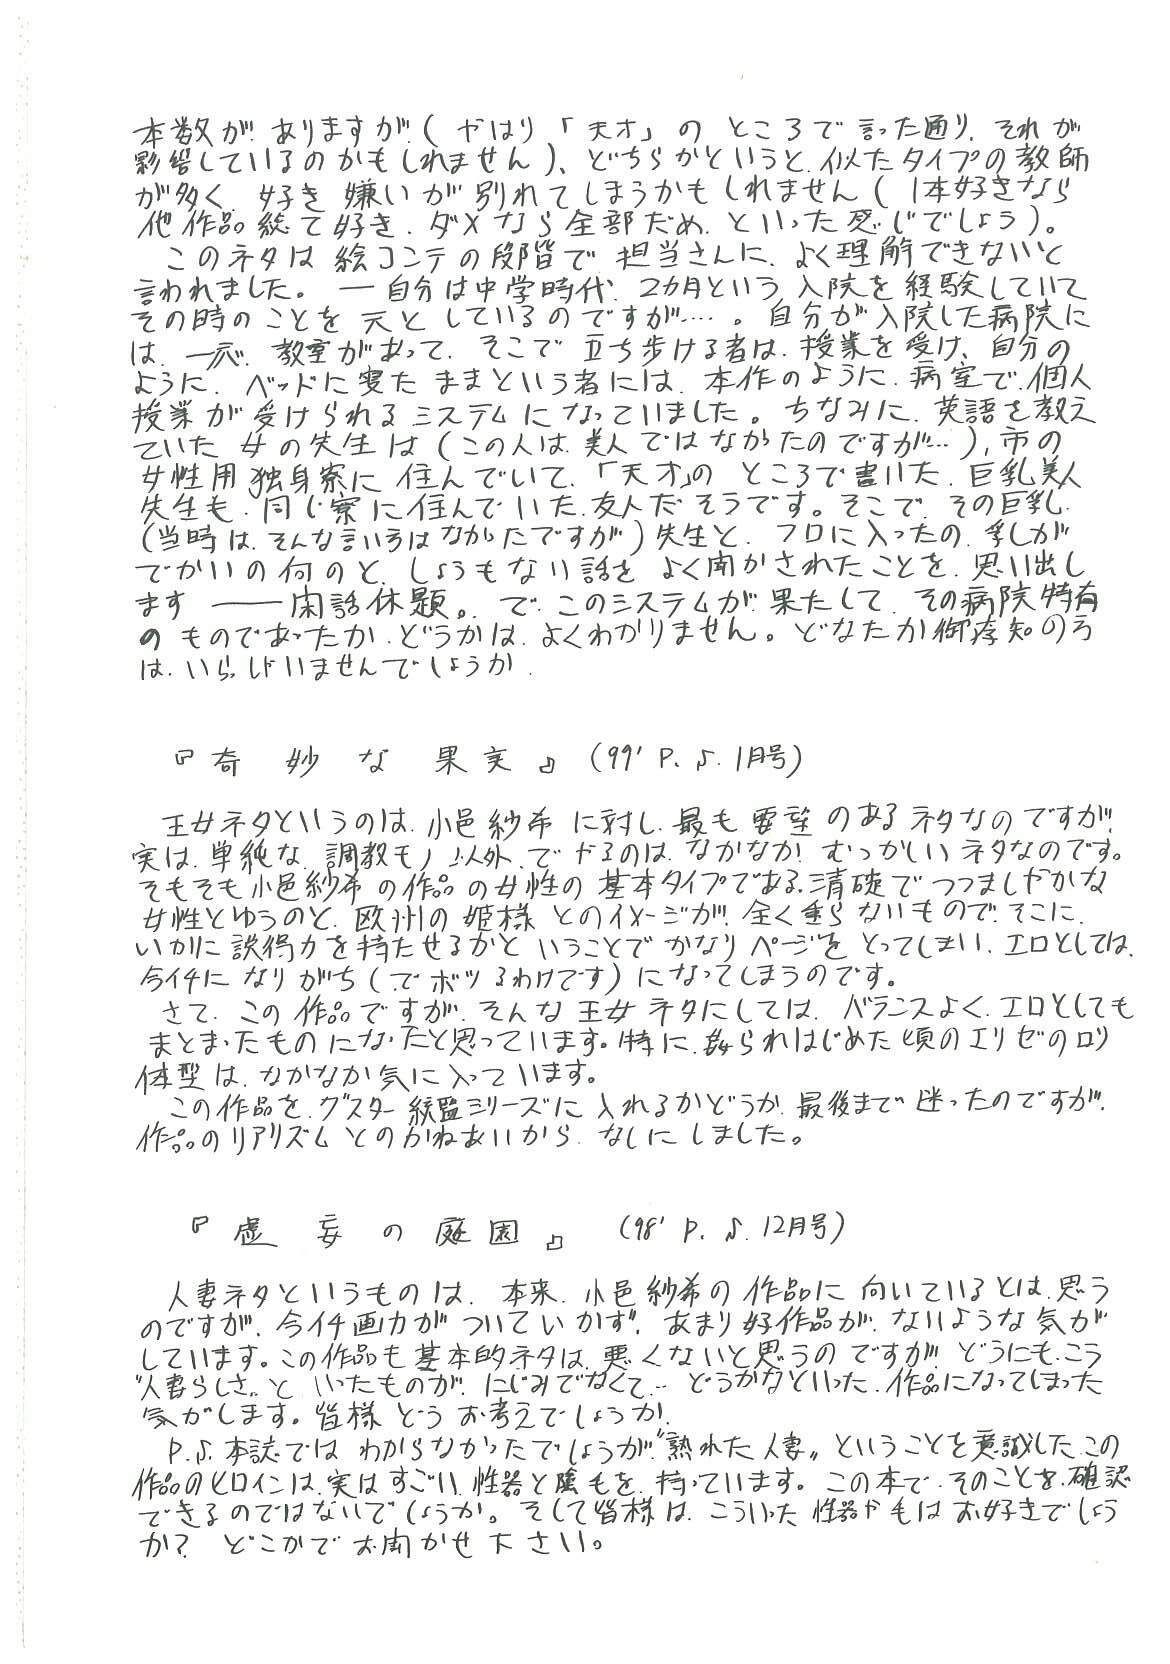 本数が、ありますが(やはり「天才」のところで言った通り、それが
影響しているのかもしれません)、どちらかというと、似たタイプの教師
が多く、好き嫌いが別れてしまうかもしれません(1本好きなら
他作品総て好き、ダメなら全部だめ、といった感じでしょう)。
このネタは絵コンテの段階で担当さんに、よく理解できないと
言われました。―自分は中学時代、2カ月という入院を経験していて
その時のことを元としているのですが……。自分が入院した病院に
は、一応、教室があって、そこで立ち歩ける者は、授業を受け、自分の
ように、ベッドに寝たままという者には、本作のように、病室で、個人
授業が受けられるシステムになっていました。ちなみに、英語を教え
ていた女の先生は(この人は、美人ではなかったのですが…)、市の
女性用独身寮に住んでいて、「天才」のところで書いた、巨乳美人
先生も、同じ寮に住んでいた、友人だそうです。そこで、その巨乳
(当時は、そんな言い方はなかったですが)先生と、フロに入ったの、乳が
でかいの何のと、しょうもない話をよく聞かされたことを、思い出し
ます――閑話休題。で、このシステムが、果たして、その病院特有
のものであったか、どうかは、よくわかりません。どなたか御存知の方
は、いらっしゃいませんでしょうか。
『奇妙な果実』(99' P.♪.1月号)
王女ネタというのは、小邑紗希に対し、最も要望のあるネタなのですが、
実は、単純な、調教モノ以外、でやるのは、なかなか、むっかしいネタなのです。
そもそも小邑紗希の作品の女性の基本タイプである、清楚でつつましやかな
女性とゆうのと、欧州の姫様とのイメージが、全く重らないもので、そこに、
いかに説得力を持たせるかということでかなりページをとってしまい、エロとしては、
今イチになりがち(でボツるわけです)になってしまうのです。
さて、この作品ですが、そんな王女ネタにしては、バランスよく、エロとしても
まとまったものになったと思っています。特に、姦られはじめた頃のエリゼのロリ
体型は、なかなか気に入っています。
この作品を、グスター総監シリーズに入れるかどうか、最後まで迷ったのですが、
作品のリアリズムとのかねあいから、なしにしました。
『虚妄の庭園』(98' P.♪.12月号)
人妻ネタというものは、本来、小邑紗希の作品に向いているとは、思う
のですが、今イチ画力がついていかず、あまり好作品が、ないような気が
しています。この作品も基本的ネタは、悪くないと思うのですが、どうにも、こう
"人妻らしさ"といったものが、にじみでなくて…どうかなといった、作品になってしまった
気がします。皆様どうお考えでしょうか。
P.♪.本誌ではわからなかったでしょうが"熟れた人妻"ということを意識した、この
作品のヒロインは、実はすごい、性器と陰毛を、持っています。この本で、そのことを、確認
できるのではないでしょうか。そして皆様は、こういった性器や毛はお好きでしょう
か?どこかでお聞かせ下さい。